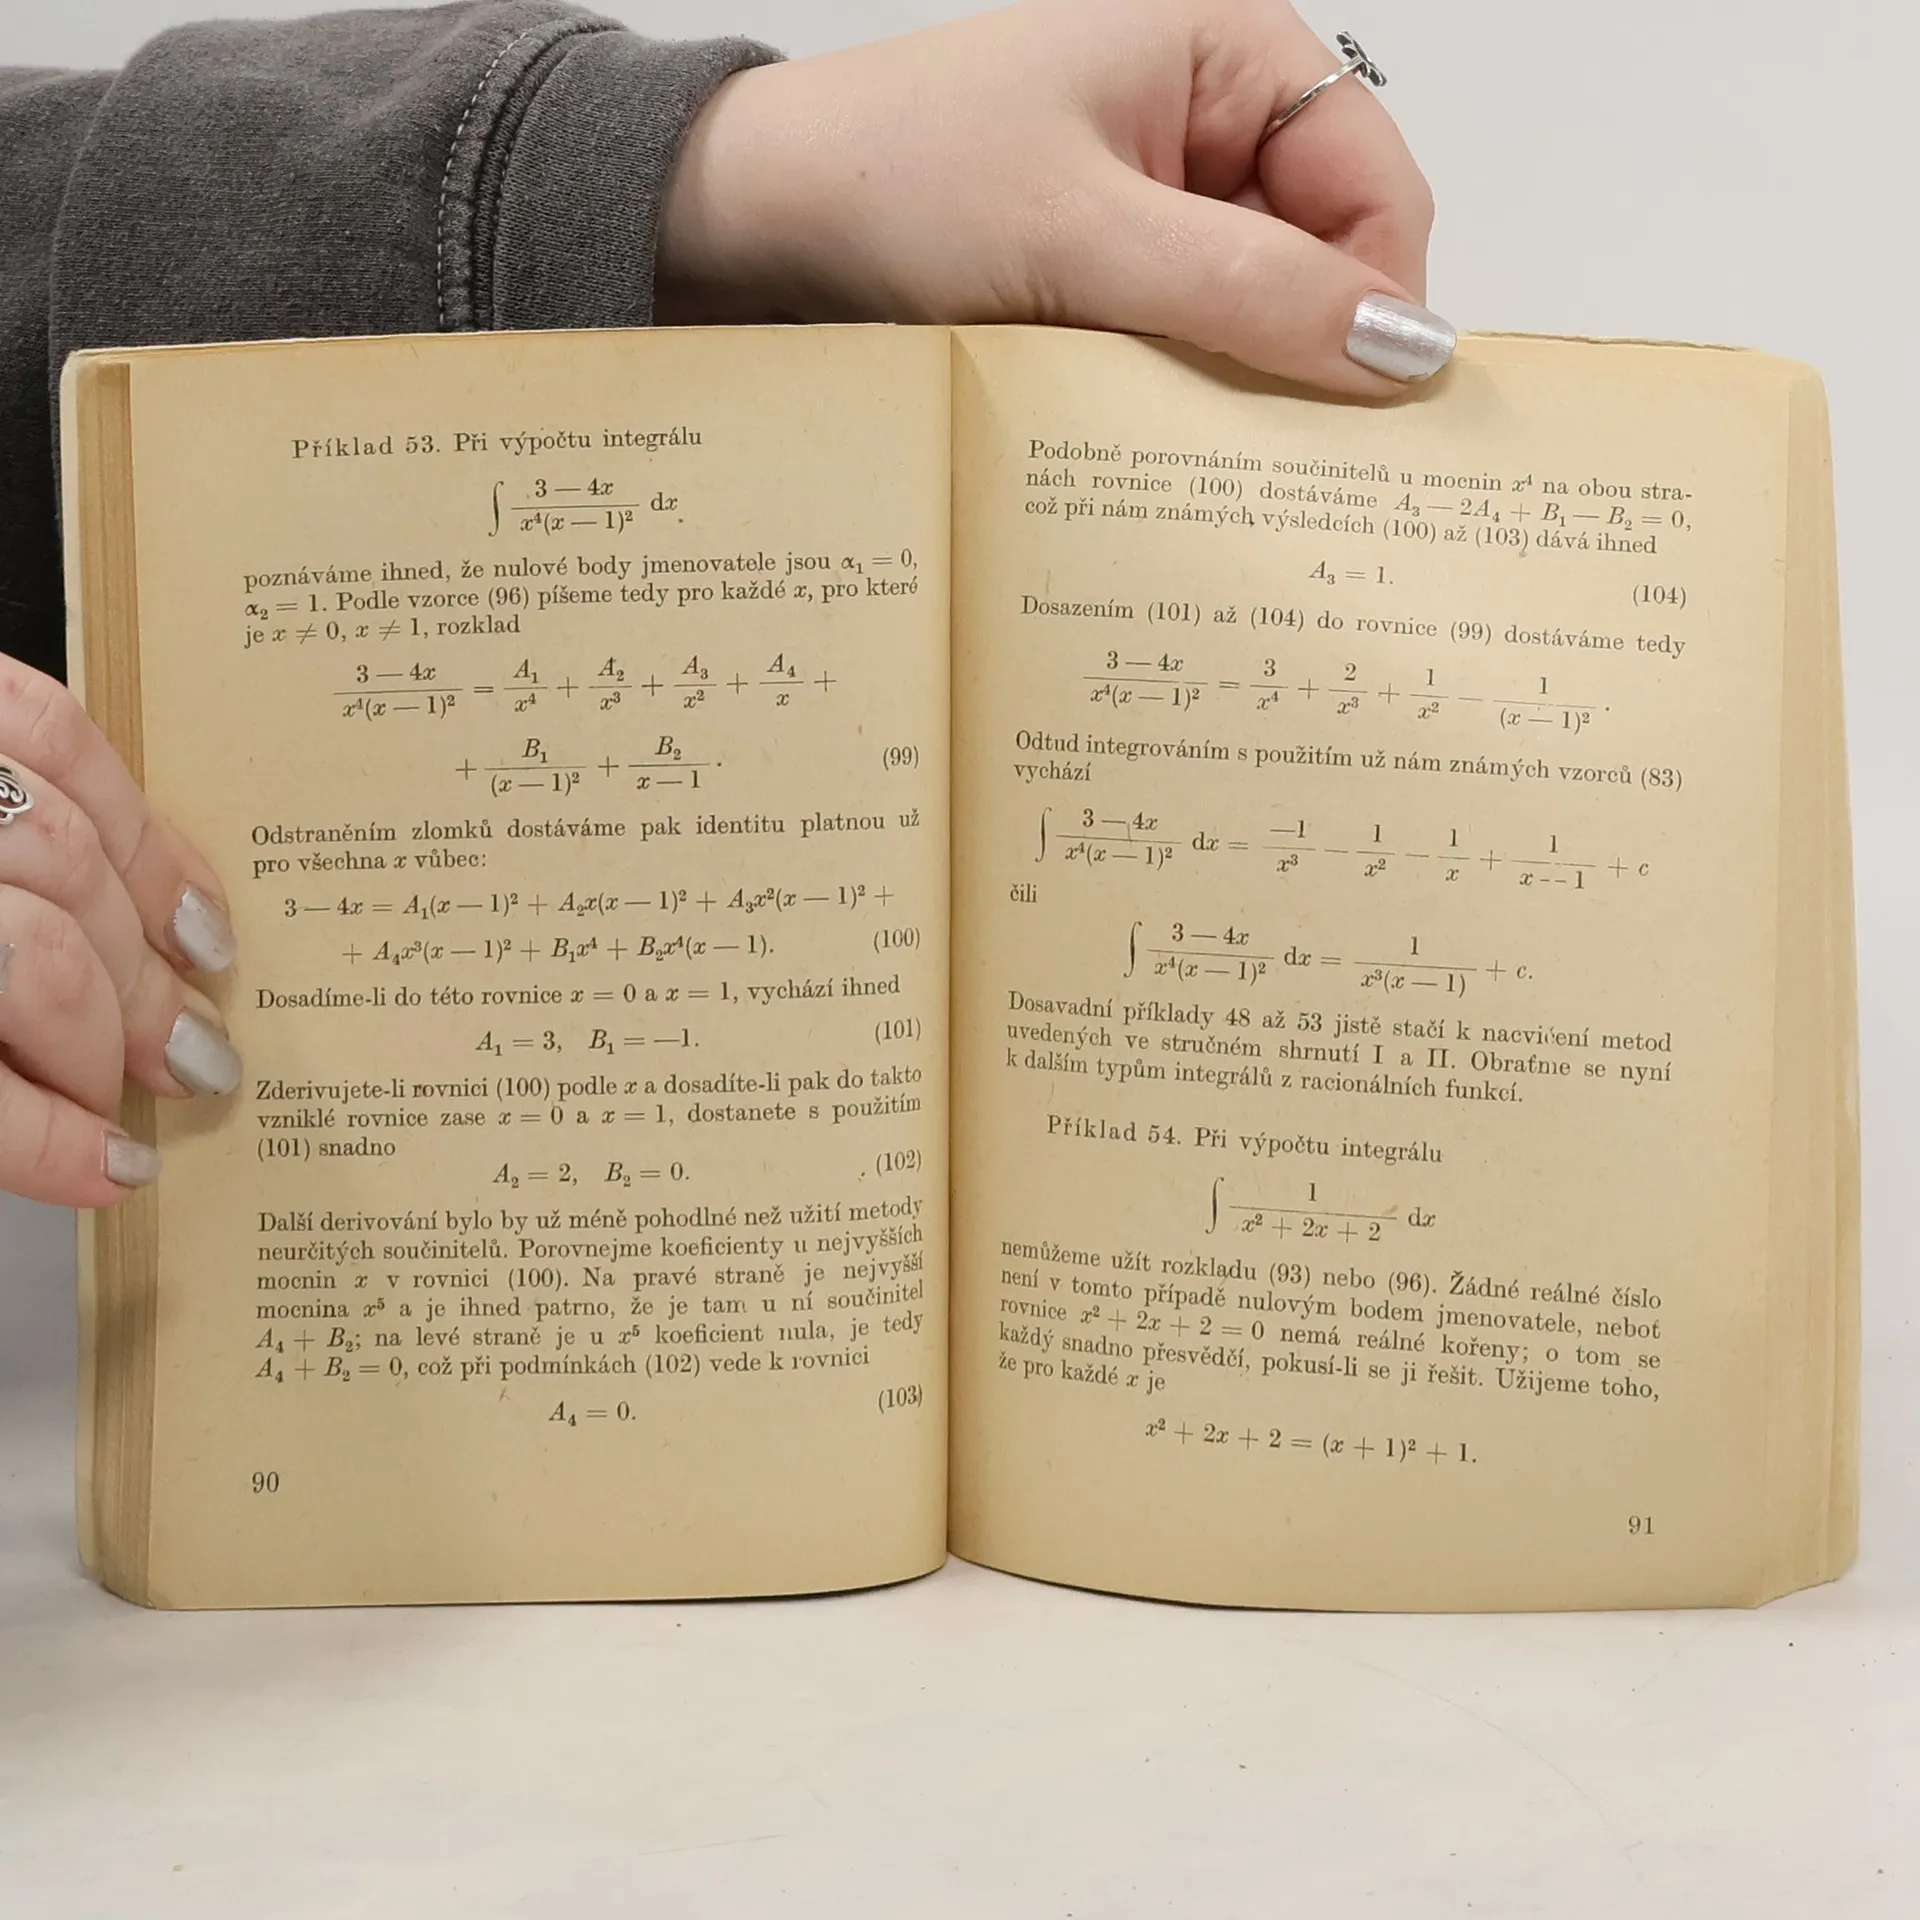 Příklad 53. Při výpočtu integrálu
∫ (3 — 4x)/(x⁴(x — 1)²) dx
poznáváme ihned, že nulové body jmenovatele jsou α₁ = 0,
α₂ = 1. Podle vzorce (96) píšeme tedy pro každé x, pro které
je x ≠ 0, x ≠ 1, rozklad
(3 — 4x)/(x⁴(x — 1)²) = A₁/x⁴ + A₂/x³ + A₃/x² + A₄/x +
+ B₁/(x — 1)² + B₂/(x — 1). (99)
Odstraněním zlomků dostáváme pak identitu platnou už
pro všechna x vůbec:
3 — 4x = A₁(x — 1)² + A₂x(x — 1)² + A₃x²(x — 1)² +
+ A₄x³(x — 1)² + B₁x⁴ + B₂x⁴(x — 1). (100)
Dosadíme-li do této rovnice x = 0 a x = 1, vychází ihned
A₁ = 3, B₁ = —1. (101)
Zderivujete-li rovnici (100) podle x a dosadíte-li pak do takto
vzniklé rovnice zase x = 0 a x = 1, dostanete s použitím
(101) snadno
A₂ = 2, B₂ = 0. (102)
Další derivování bylo by už méně pohodlné než užití metody
neurčitých součinitelů. Porovnejme koeficienty u nejvyšších
mocnin x v rovnici (100). Na pravé straně je nejvyšší
mocnina x⁵ a je ihned patrno, že je tam u ní součinitel
A₄ + B₂; na levé straně je u x⁵ koeficient nula, je tedy
A₄ + B₂ = 0, což při podmínkách (102) vede k rovnici
A₄ = 0. (103)
90
Podobně porovnáním součinitelů u mocnin x⁴ na obou stra-
nách rovnice (100) dostáváme A₃ — 2A₄ + B₁ — B₂ = 0,
což při nám známých výsledcích (100) až (103) dává ihned
A₃ = 1. (104)
Dosazením (101) až (104) do rovnice (99) dostáváme tedy
(3 — 4x)/(x⁴(x — 1)²) = 3/x⁴ + 2/x³ + 1/x² — 1/(x — 1)².
Odtud integrováním s použitím už nám známých vzorců (83)
vychází
∫ (3 — 4x)/(x⁴(x — 1)²) dx = —1/x³ — 1/x² — 1/x + 1/(x - - 1) + c
čili
∫ (3 — 4x)/(x⁴(x — 1)²) dx = 1/(x³(x — 1)) + c.
Dosavadní příklady 48 až 53 jistě stačí k nacvičení metod
uvedených ve stručném shrnutí I a II. Obraťme se nyní
k dalším typům integrálů z racionálních funkcí.
Příklad 54. Při výpočtu integrálu
∫ 1/(x² + 2x + 2) dx
nemůžeme užít rozkladu (93) nebo (96). Žádné reálné číslo
není v tomto případě nulovým bodem jmenovatele, neboť
rovnice x² + 2x + 2 = 0 nemá reálné kořeny; o tom se
každý snadno přesvědčí, pokusí-li se ji řešit. Užijeme toho,
že pro každé x je
x² + 2x + 2 = (x + 1)² + 1.
91